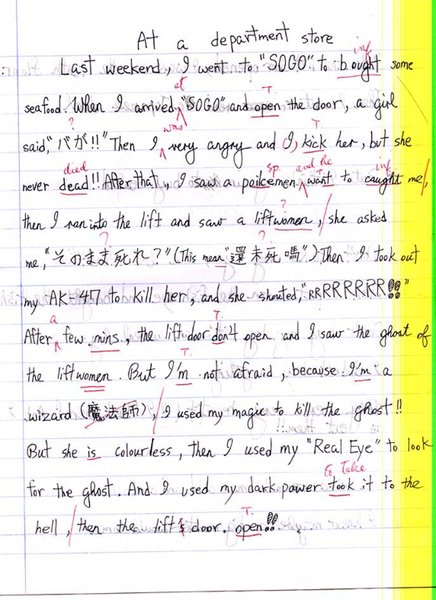 At a department store
Last weekend, I went to "SOGO" to bought ing some
seafood. When I arrived at "SOGO" and open the door, a girl
said, "バが!!" Then I was very angry and I, kick her, but she
never dead!! After that, I saw a poilcemen want to caught me,
then I ran into the lift and saw a liftwomen, she asked
me, "そのまま死れ?" (This mean "還未死嗎") Then I took out
my AK-47 to kill her, and she shouted, "RRRRRRRR!!"
After a few mins the lift door don't open and I saw the ghost of
the liftwomen. But I'm not afraid, because I'm a
wizard (魔法師), I used my magic to kill the ghost!!
But she is colourless, then I used my "Real Eye" to look
for the ghost. And I used my dark power took it to the
hell, then the lift's door. open!!